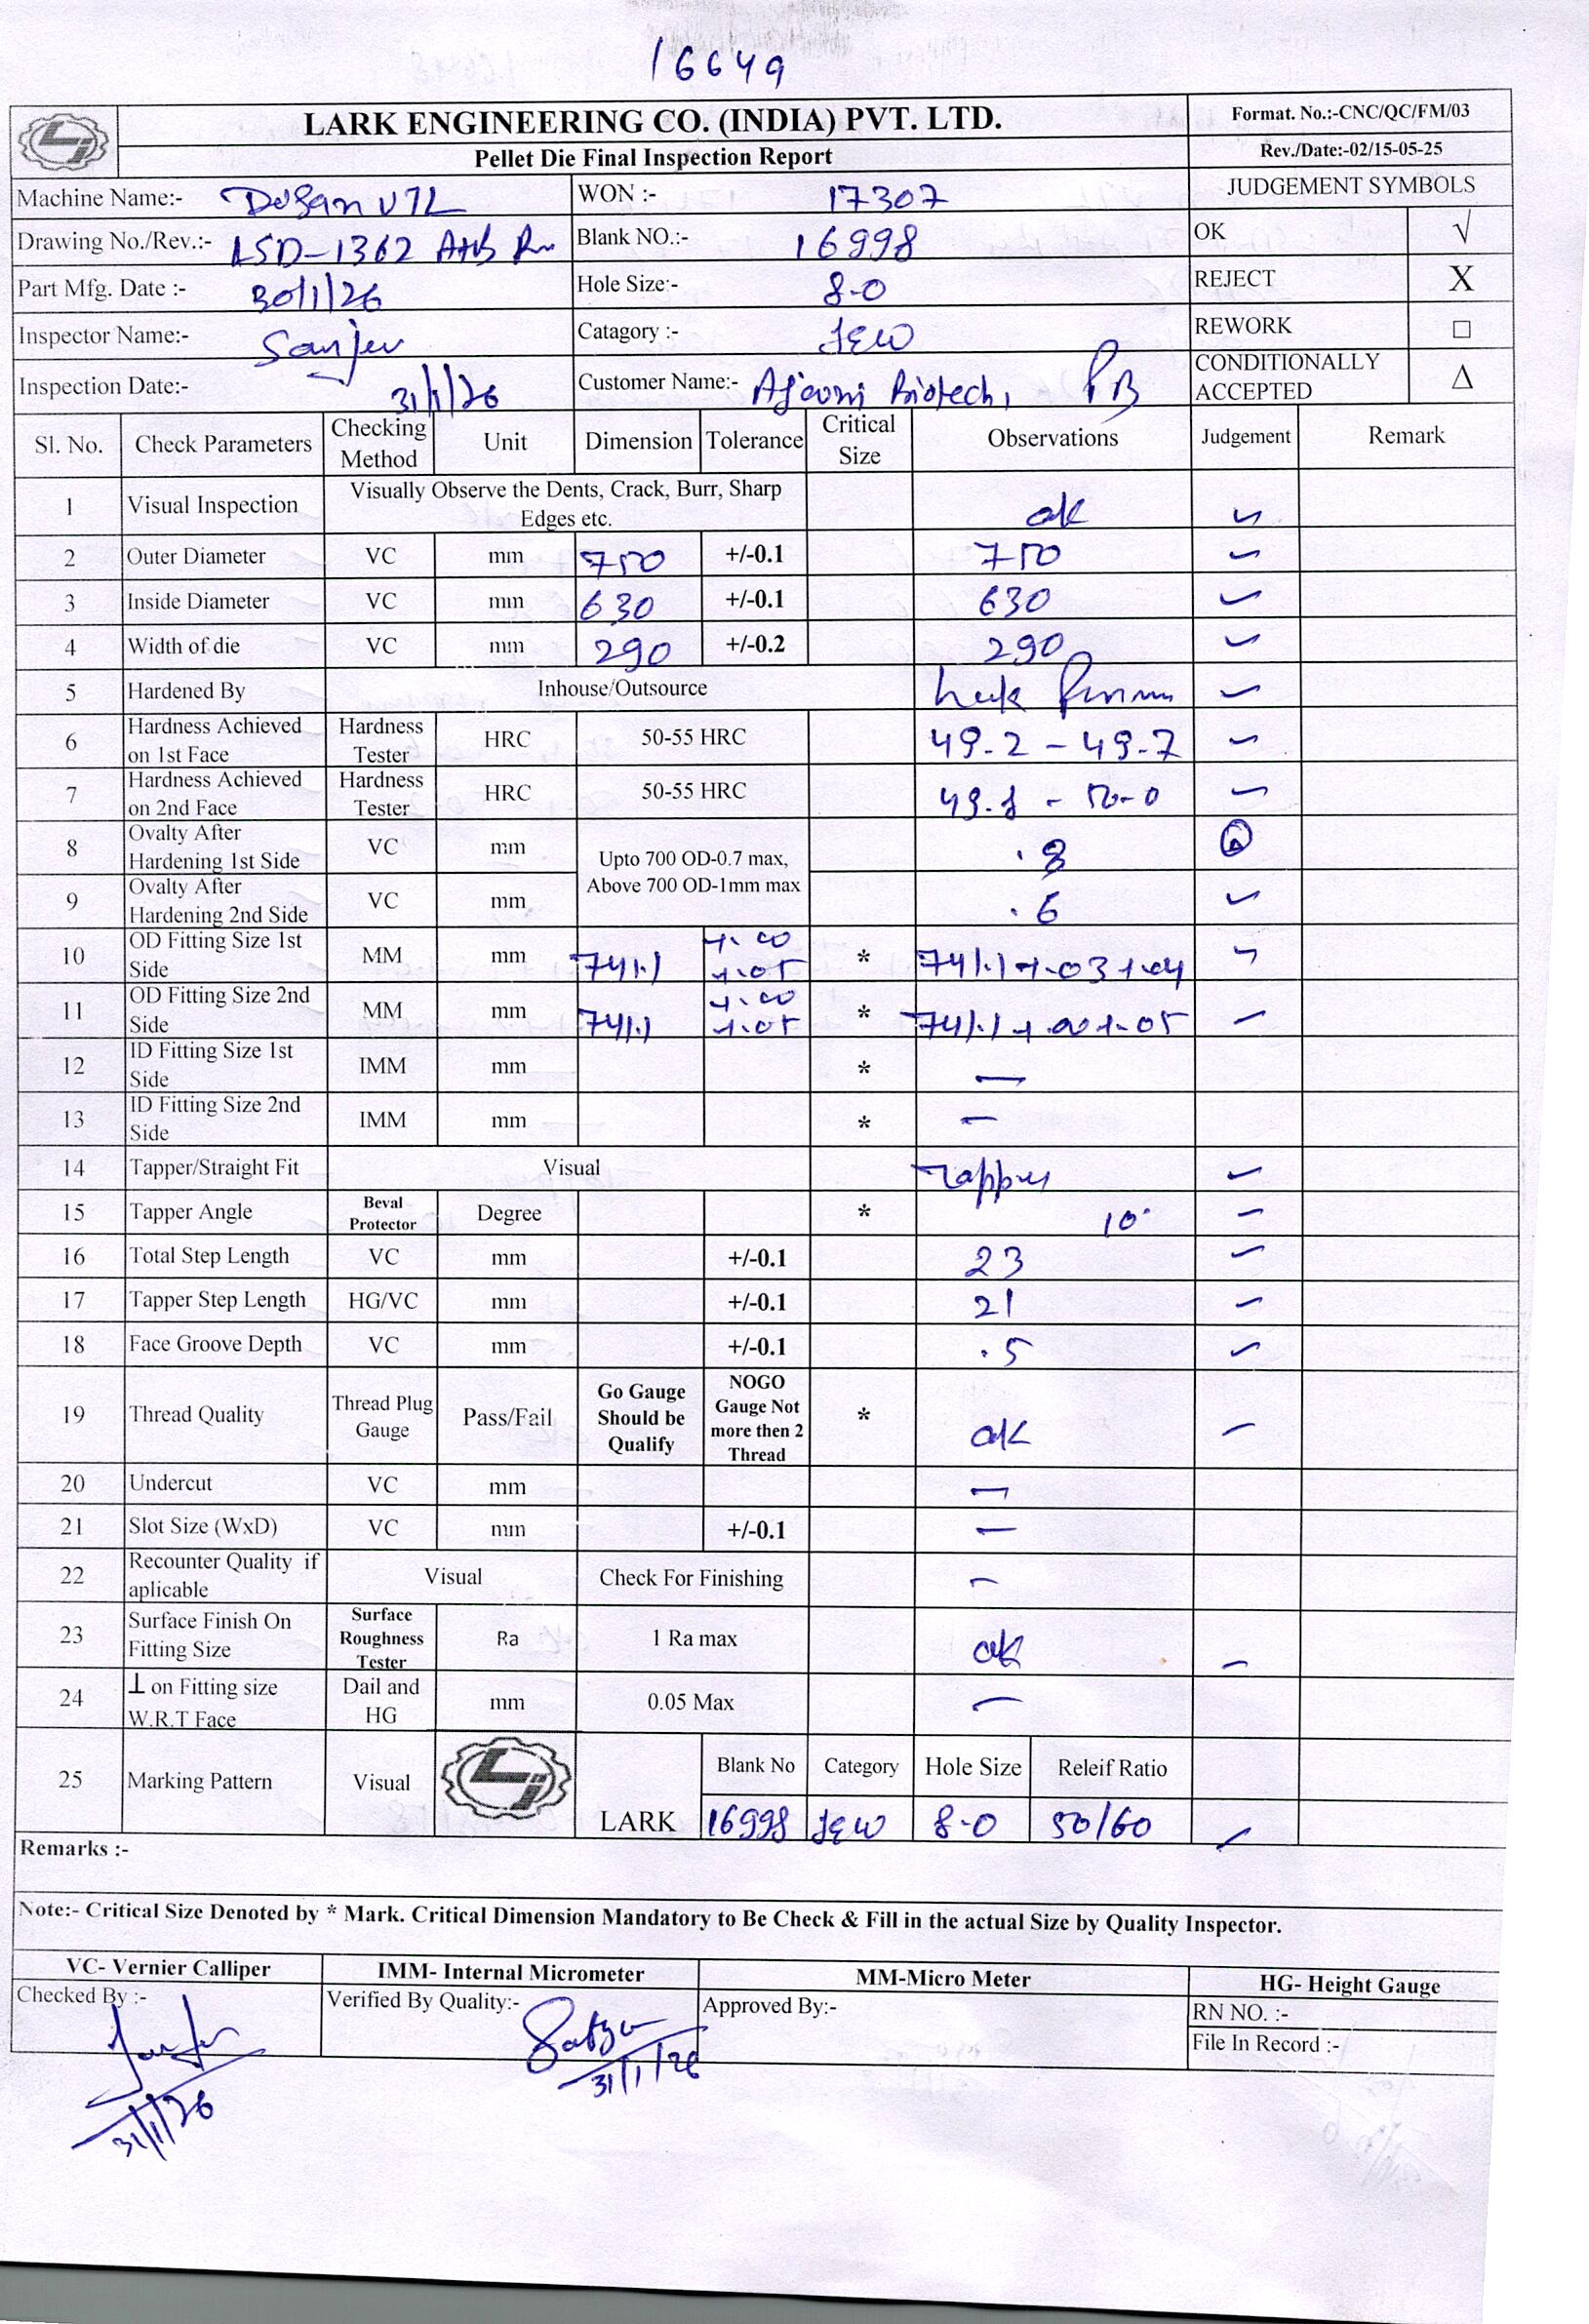 16649
LARK ENGINEERING CO. (INDIA) PVT. LTD.
Pellet Die Final Inspection Report
Format. No.:-CNC/QC/FM/03
Rev./Date:-02/15-05-25
Machine Name:- Dosan VTL WON :- 17307 JUDGEMENT SYMBOLS
Drawing No./Rev.:- LSD-1362 Blank NO.:- 16998 OK √
Part Mfg. Date :- 30/1/26 Hole Size:- 8.0 REJECT X
Inspector Name:- Sanjev Catagory :- REWORK □
Inspection Date:- 31/1/26 Customer Name:- Ajooni Biotech, PB CONDITIONALLY ACCEPTED Δ
Sl. No. Check Parameters Checking Method Unit Dimension Tolerance Critical Size Observations Judgement Remark
1 Visual Inspection Visually Observe the Dents, Crack, Burr, Sharp Edges etc. ok ✓
2 Outer Diameter VC mm 750 +/-0.1 750 ✓
3 Inside Diameter VC mm 630 +/-0.1 630 ✓
4 Width of die VC mm 290 +/-0.2 290 ✓
5 Hardened By Inhouse/Outsource ✓
6 Hardness Achieved on 1st Face Hardness Tester HRC 50-55 HRC 49.2 - 49.7 ✓
7 Hardness Achieved on 2nd Face Hardness Tester HRC 50-55 HRC 50.0 ✓
8 Ovalty After Hardening 1st Side VC mm Upto 700 OD-0.7 max, Above 700 OD-1mm max .8
9 Ovalty After Hardening 2nd Side VC mm .6 ✓
10 OD Fitting Size 1st Side MM mm 741.1 +.00 +.05 * 741.1 +.03 +.04 ✓
11 OD Fitting Size 2nd Side MM mm 741.1 +.00 +.05 * 741.1 +.05 ✓
12 ID Fitting Size 1st Side IMM mm * —
13 ID Fitting Size 2nd Side IMM mm * —
14 Tapper/Straight Fit Visual Tapper ✓
15 Tapper Angle Beval Protector Degree * 10° ✓
16 Total Step Length VC mm +/-0.1 23 ✓
17 Tapper Step Length HG/VC mm +/-0.1 21 ✓
18 Face Groove Depth VC mm +/-0.1 .5 ✓
19 Thread Quality Thread Plug Gauge Pass/Fail Go Gauge Should be Qualify NOGO Gauge Not more then 2 Thread * ok ✓
20 Undercut VC mm —
21 Slot Size (WxD) VC mm +/-0.1 —
22 Recounter Quality if aplicable Visual Check For Finishing —
23 Surface Finish On Fitting Size Surface Roughness Tester Ra 1 Ra max ok ✓
24 ⊥ on Fitting size W.R.T Face Dail and HG mm 0.05 Max —
25 Marking Pattern Visual LARK Blank No Category Hole Size Releif Ratio
16998 8.0 50/60 ✓
Remarks :-
Note:- Critical Size Denoted by * Mark. Critical Dimension Mandatory to Be Check & Fill in the actual Size by Quality Inspector.
VC- Vernier Calliper IMM- Internal Micrometer MM-Micro Meter HG- Height Gauge
Checked By :- Verified By Quality:- Approved By:- RN NO. :-
File In Record :-
31/1/26
31/1/26